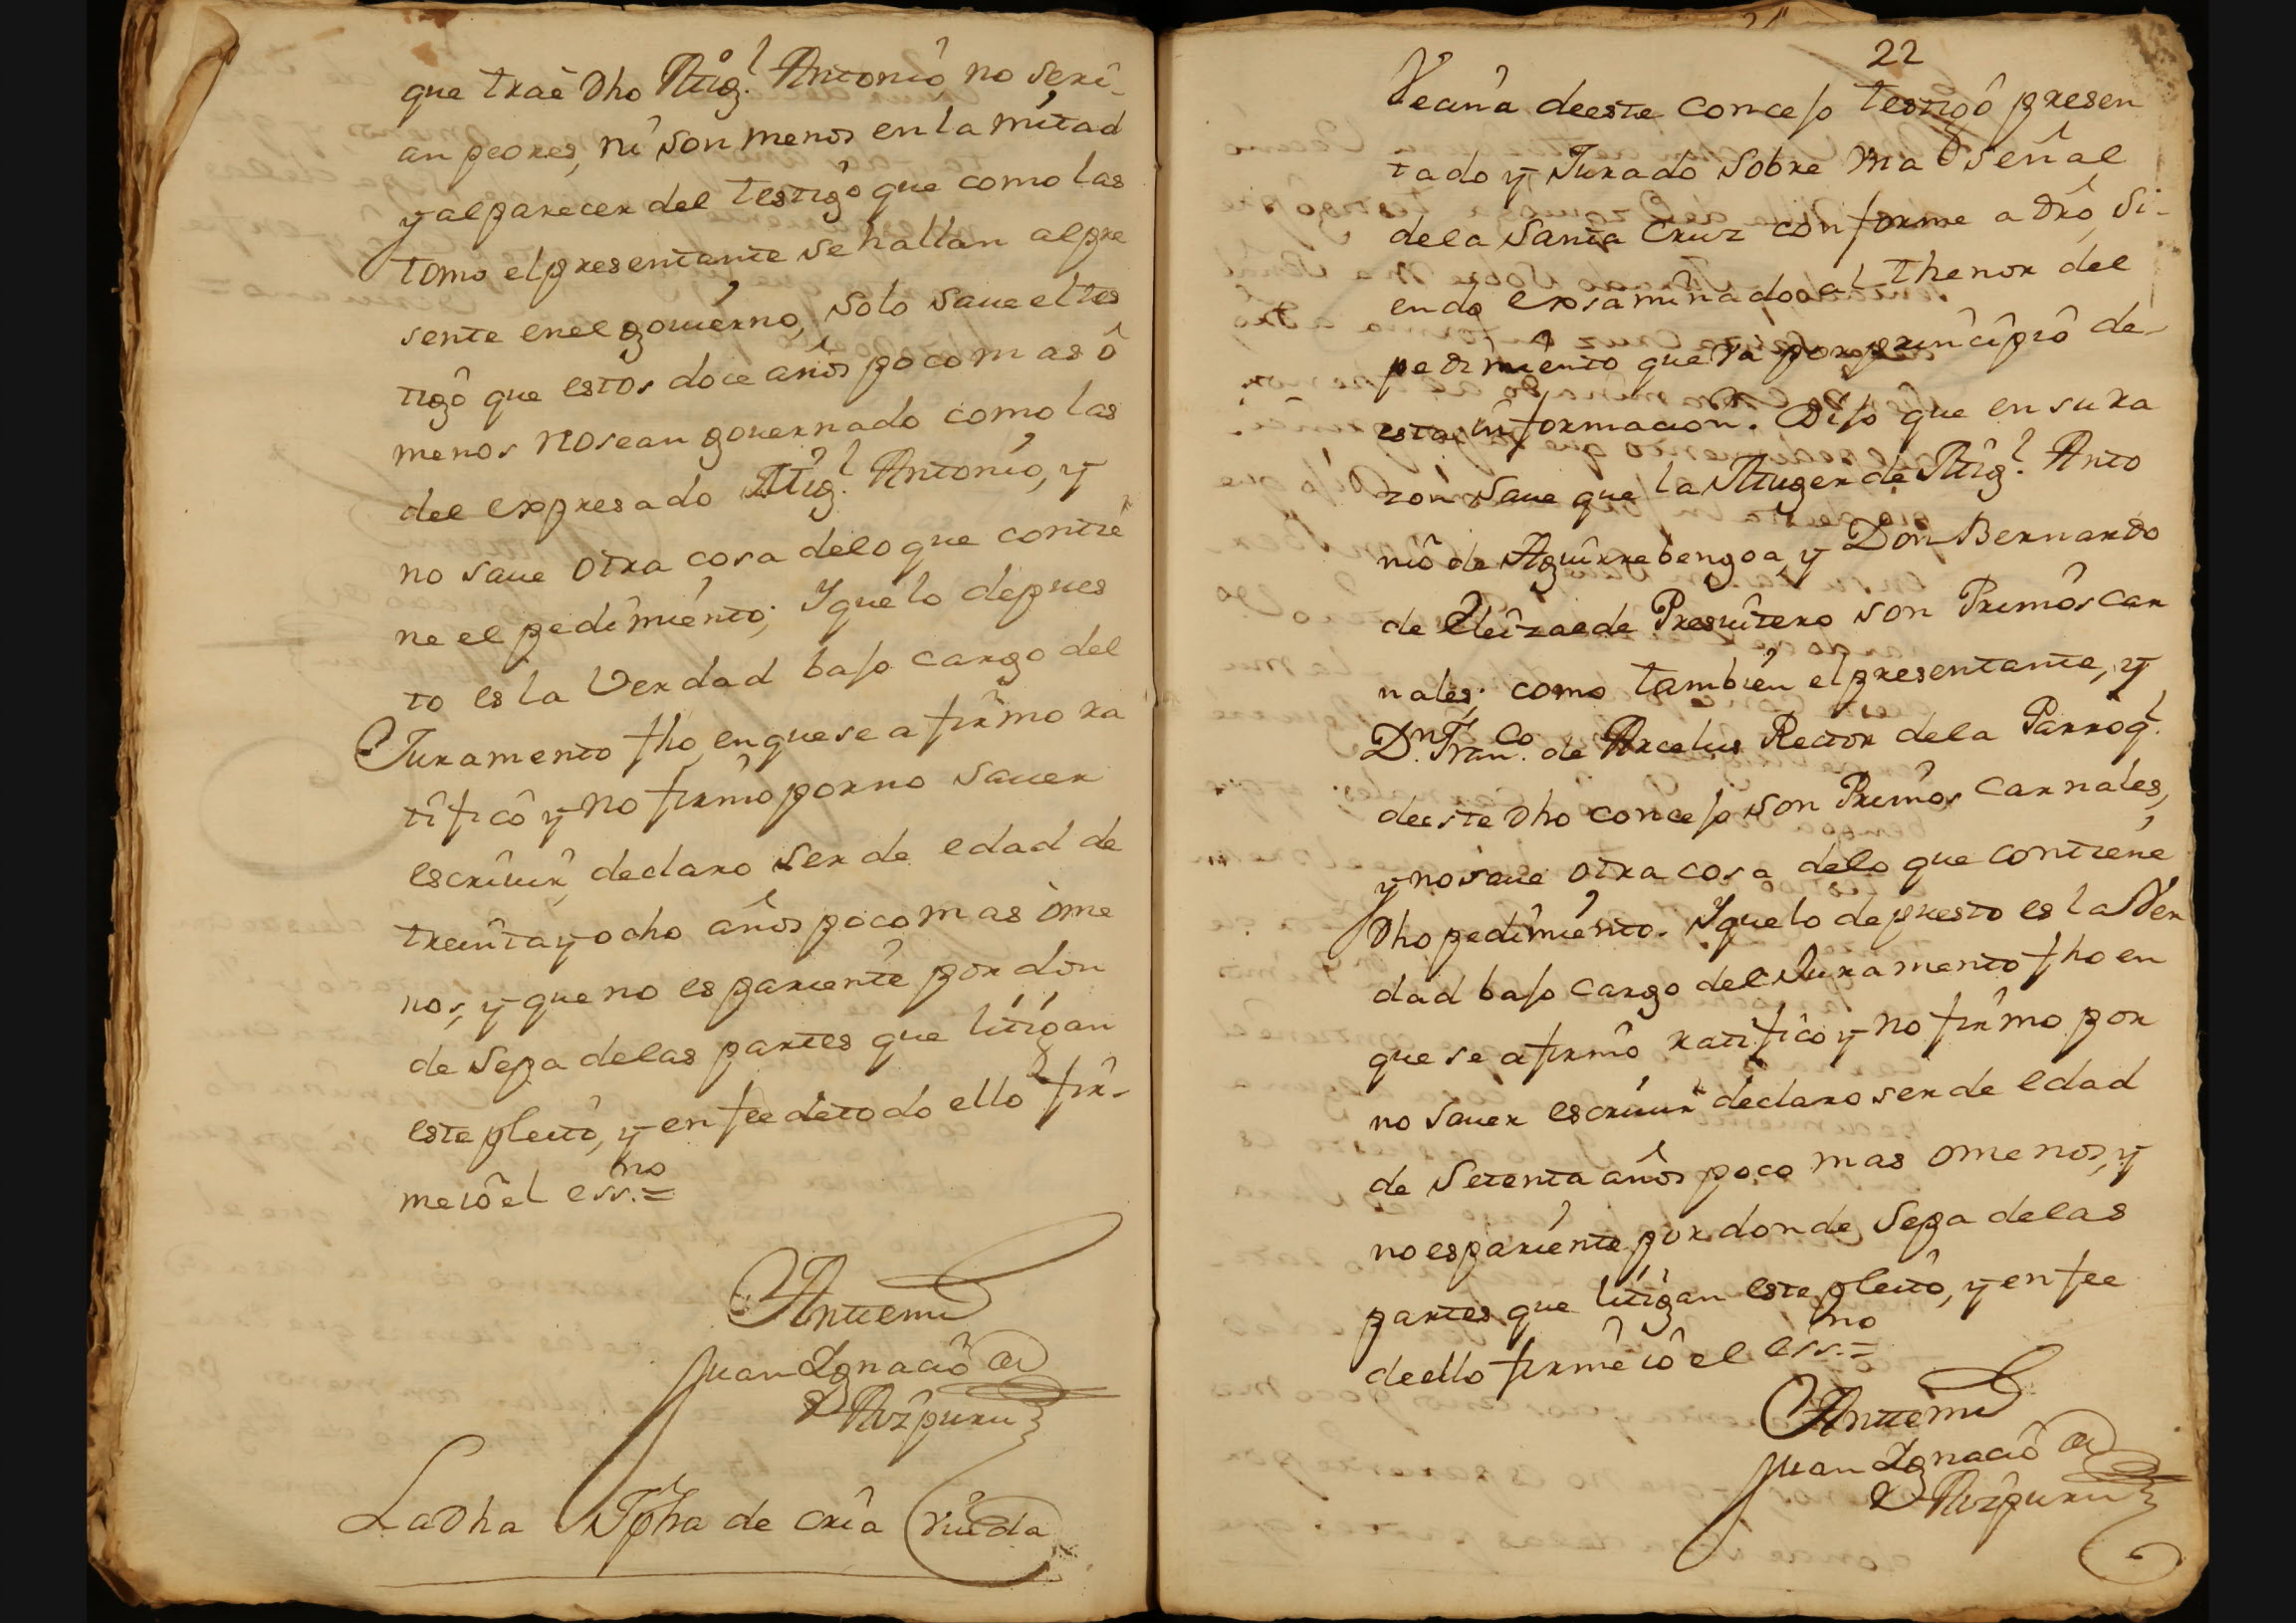 que trae dho Mig.l Antonio no seri-
an peores, ni son menos en la mitad
y al parecer del testigo que como las
tomo el presentante se hallan al pre
sente en el govierno, solo save el tes
tigo que estos doce años poco mas o
menos no sean governado como las
del expresado Mig.l Antonio, y
no save otra cosa de lo que contie
ne el pedimiento; Y que lo depues
to es la Verdad bajo cargo del
Juramento fho, en que se afirmo ra
tifico y no firmo por no saver
escrivir, declaro ser de edad de
treinta y ocho años poco mas o me
nos, y que no es pariente por don
de Sepa de las partes que litigan
este pleito, y en fee de todo ello fir-
me io el ess.no=
Antemi
Juan Ignacio de
Aizpuru
La dha de cria viuda
22
Vecina de este concejo testigo presen
tado y Jurado Sobre una señal
de la Santa Cruz conforme a dro, si-
endo examinado al thenor del
pedimiento que va por principio de
esta informacion. Dijo que en su ra
zon save que la Muger de Mig.l Anto
nio de Aguirrebengoa, y Don Bernardo
de Eleizalde Presvitero son Primos car
nales, como tambien el presentante, y
D.n Fran.co de Arcelus Rector de la Parroq.l
de este dho concejo son Primos carnales,
y no save otra cosa de lo que contiene
dho pedimiento. Y que lo depuesto es la Ver
dad bajo cargo del Juramento fho en
que se afirmo ratifico y no firmo por
no saver escrivir declaro ser de edad
de Setenta años poco mas o menos, y
no es pariente por donde Sepa de las
partes que litigan este pleito, y en fee
de ello firme io el ess.no=
Antemi
Juan Ignacio de
Aizpuru